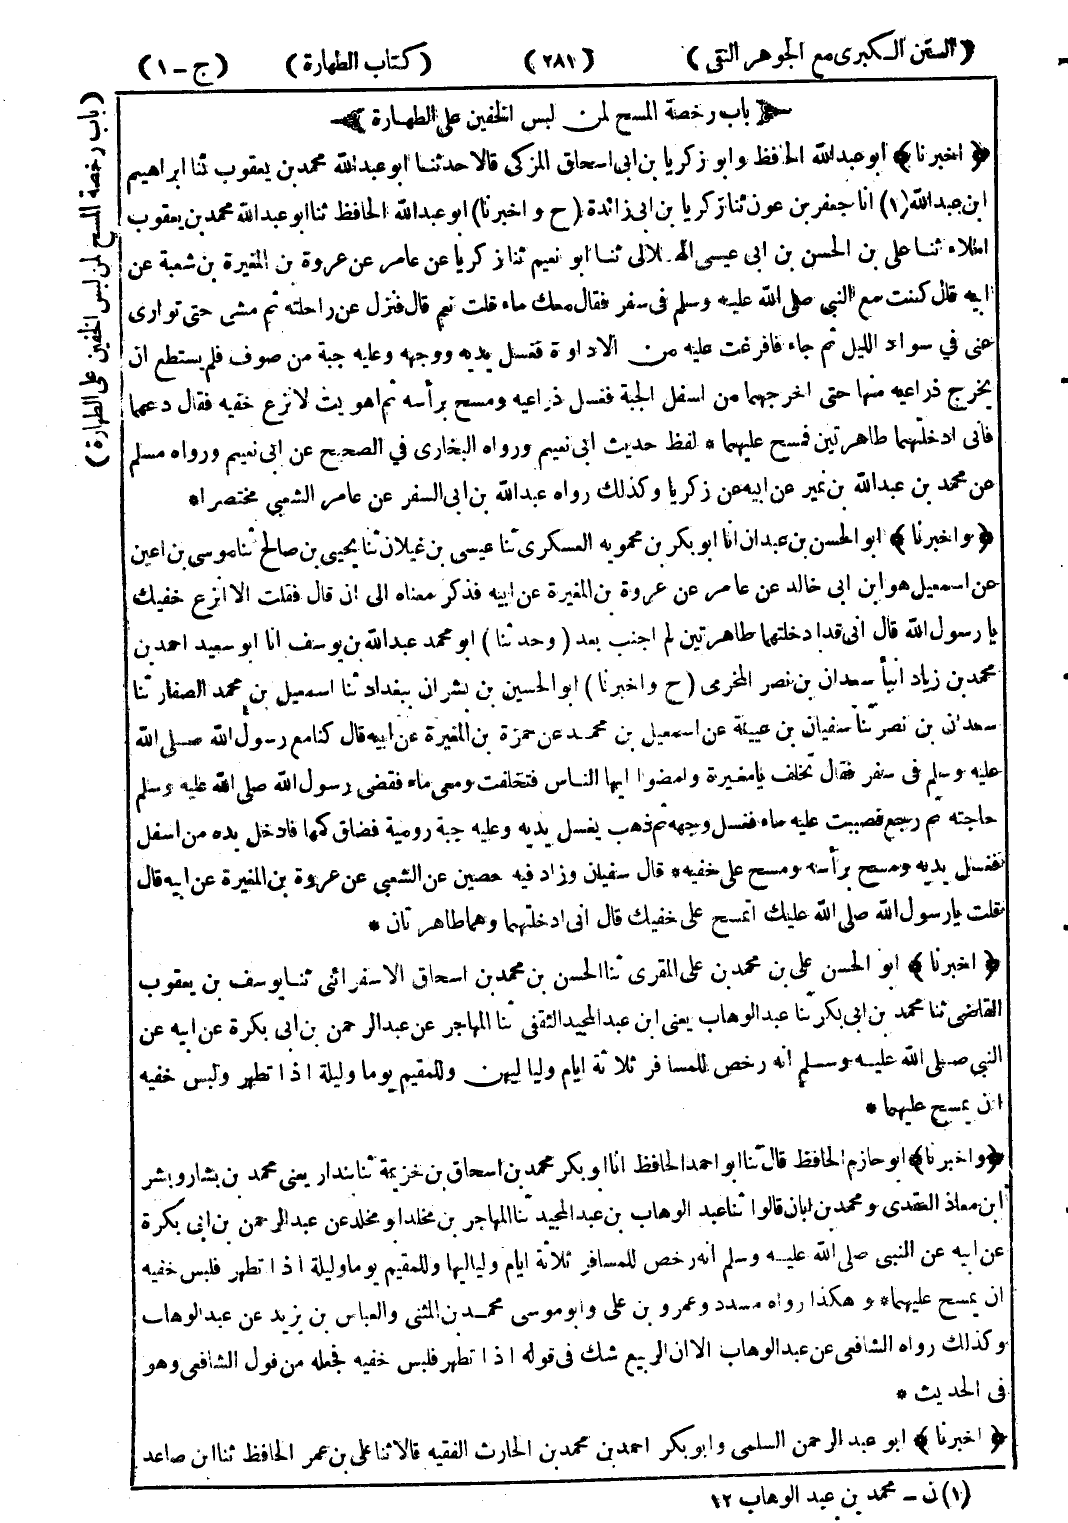 (السنن الكبرى مع الجوهر النقى) (٢٨١) (كتاب الطهارة) (ج-١)
(باب رخصة المسح لمن لبس الخفين على الطهارة)
باب رخصة المسح لمن لبس الخفين على الطهارة
﴿اخبرنا﴾ ابو عبد الله الحافظ وابو زكريا بن ابى اسحاق المزكى قالا حدثنا ابو عبد الله محمد بن يعقوب ثنا ابراهيم
ابن عبد الله (١) انا جعفر بن عون ثنا زكريا بن ابى زائدة (ح واخبرنا) ابو عبد الله الحافظ ثنا ابو عبد الله محمد بن يعقوب
املاء ثنا على بن الحسن بن ابى عيسى الهلالى ثنا ابو نعيم ثنا زكريا عن عامر عن عروة بن المغيرة بن شعبة عن
ابيه قال كنت مع النبي صلى الله عليه وسلم فى سفر فقال معك ماء قلت نعم قال فنزل عن راحلته ثم مشى حتى توارى
عنى في سواد الليل ثم جاء فافرغت عليه من الاداوة فغسل يديه ووجهه وعليه جبة من صوف فلم يستطع ان
يخرج ذراعيه منها حتى اخرجهما من اسفل الجبة فغسل ذراعيه ومسح برأسه ثم اهويت لانزع خفيه فقال دعهما
فانى ادخلتهما طاهرتين فمسح عليهما * لفظ حديث ابى نعيم ورواه البخارى في الصحيح عن ابى نعيم ورواه مسلم
عن محمد بن عبد الله بن نمير عن ابيه عن زكريا وكذلك رواه عبد الله بن ابى السفر عن عامر الشعبي مختصرا*
﴿واخبرنا﴾ ابو الحسن بن عبدان انا ابو بكر بن محمويه العسكرى ثنا عيسى بن غيلان ثنا يحيى بن صالح ثنا موسى بن اعين
عن اسمعيل هو ابن ابى خالد عن عامر عن عروة بن المغيرة عن ابيه فذكر معناه الى ان قال فقلت الا انزع خفيك
يا رسول الله قال انى قد ادخلتهما طاهرتين لم اجنب بعد (وحدثنا) ابو محمد عبد الله بن يوسف انا ابو سعيد احمد بن
محمد بن زياد انبأ سعدان بن نصر المخرمى (ح واخبرنا) ابو الحسين بن بشران ببغداد ثنا اسمعيل بن محمد الصفار ثنا
سعدان بن نصر ثنا سفيان بن عيينة عن اسمعيل بن محمد عن حمزة بن المغيرة عن ابيه قال كنا مع رسول الله صلى الله
عليه وسلم فى سفر فقال تخلف يا مغيرة وامضوا ايها الناس فتخلفت ومعى ماء فقضى رسول الله صلى الله عليه وسلم
حاجته ثم رجع فصببت عليه ماء فغسل وجهه ثم ذهب يغسل يديه وعليه جبة رومية فضاق كمها فادخل يده من اسفل
فغسل يديه ومسح برأسه ومسح على خفيه* قال سفيان وزاد فيه حصين عن الشعبى عن عروة بن المغيرة عن ابيه قال
فقلت يا رسول الله صلى الله عليك اتمسح على خفيك قال انى ادخلتهما وهما طاهرتان *
﴿اخبرنا﴾ ابو الحسن على بن محمد بن على المقرى ثنا الحسن بن محمد بن اسحاق الاسفرائنى ثنا يوسف بن يعقوب
القاضى ثنا محمد بن ابى بكر ثنا عبد الوهاب يعنى ابن عبد المجيد الثقفى ثنا المهاجر عن عبد الرحمن بن ابى بكرة عن ابيه عن
النبي صلى الله عليه وسلم انه رخص للمسافر ثلاثة ايام ولياليهن وللمقيم يوما وليلة اذا تطهر ولبس خفيه
ان يمسح عليهما *
﴿واخبرنا﴾ ابو حازم الحافظ قال ثنا ابو احمد الحافظ انا ابو بكر محمد بن اسحاق بن خزيمة ثنا بندار يعنى محمد بن بشار وبشر
ابن معاذ العقدى ومحمد بن ابان قالوا ثنا عبد الوهاب بن عبد المجيد ثنا المهاجر بن مخلد ابو مخلد عن عبد الرحمن بن ابى بكرة
عن ابيه عن النبى صلى الله عليه وسلم انه رخص للمسافر ثلاثة ايام ولياليها وللمقيم يوما وليلة اذا تطهر فلبس خفيه
ان يمسح عليهما* وهكذا رواه مسدد وعمرو بن على وابو موسى محمد بن المثنى والعباس بن يزيد عن عبد الوهاب
وكذلك رواه الشافعى عن عبد الوهاب الا ان الربيع شك فى قوله اذا تطهر فلبس خفيه فجعله من قول الشافعى وهو
فى الحديث *
﴿اخبرنا﴾ ابو عبد الرحمن السلمى وابو بكر احمد بن محمد بن الحارث الفقيه قالا ثنا على بن عمر الحافظ ثنا ابن صاعد
(١) ن - محمد بن عبد الوهاب ١٢